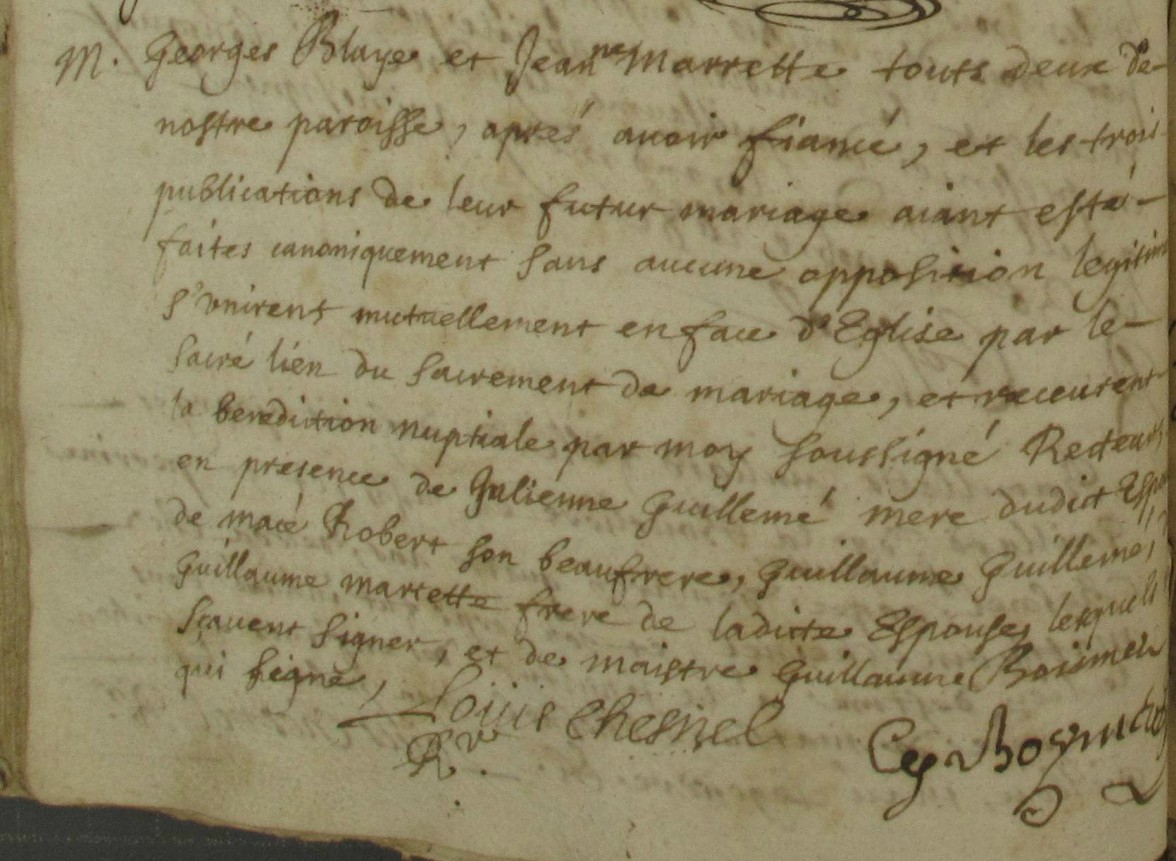 M. Georges Blaye et Jeanne Marrette touts deux de
nostre paroisse, aprés avoir fiancé, et les trois
publications de leur futur mariage aiant esté
faites canoniquement sans aucune opposition legitim
s'unirent mutuellement en face d'Eglise par le
sacré lien du sacrement de mariage, et receurent
la benediction nuptiale par moy soussigné Recteur
en presence de Julienne Guillemé mere dudict Esp
de macé Robert son beaufrere, Guillaume Guillemé,
Guillaume martette frere de ladicte Espouse, lesquels
scavent signer, et de maistre Guillaume
qui signe, Louis Chesnel
Rr.